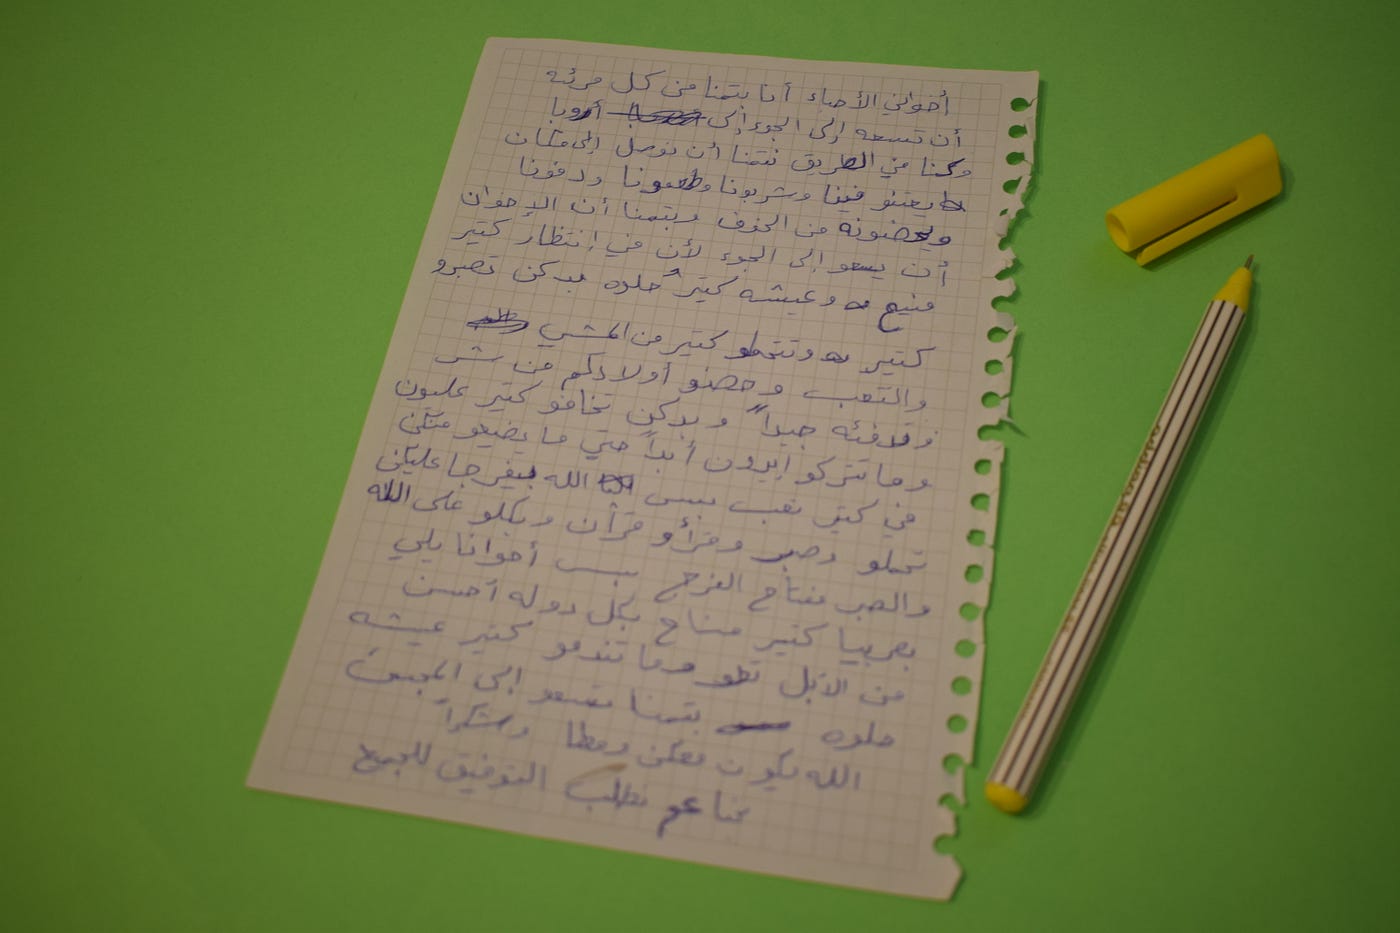 أخواني الأحباء أنا بتمنا من كل مرئه
أن تسعه إلى الجوء إلى أروبا
وكنا في الطريق نتمنا أن نوصل إلى مكان
يعتنو فينا وشربونا وطعمونا ودفونا
ويحضنونه من الخوف وبتمنا أن الإخوان
أن يسعو إلى الجوء لأن في إنتظار كتير
منيح وعيشه كتير حلوه بدكن تصبرو
كتير وتتحملو كتير من المشي
والتعب وحضنو أولادكم من شر
وتدفئه جيداً وبدكن تخافو كتير عليون
وما تتركو إيدون أبداً حتي ما يضيعو منكن
في كتير تعب بس الله بيفرجا عليكن
تحملو وصبر وقرأو قرآن وتكلو على الله
والصبر مفتاح الفرج بس أخوانا يلي
بصربيا كتير مناح بكل دوله أحسن
من الأبل وما تندمو كتير عيشه
حلوه بتمنا تسعو إلى المجيئ
الله يكون معكن وشكراً
نحنا عم نطلب التوفيق للجميع